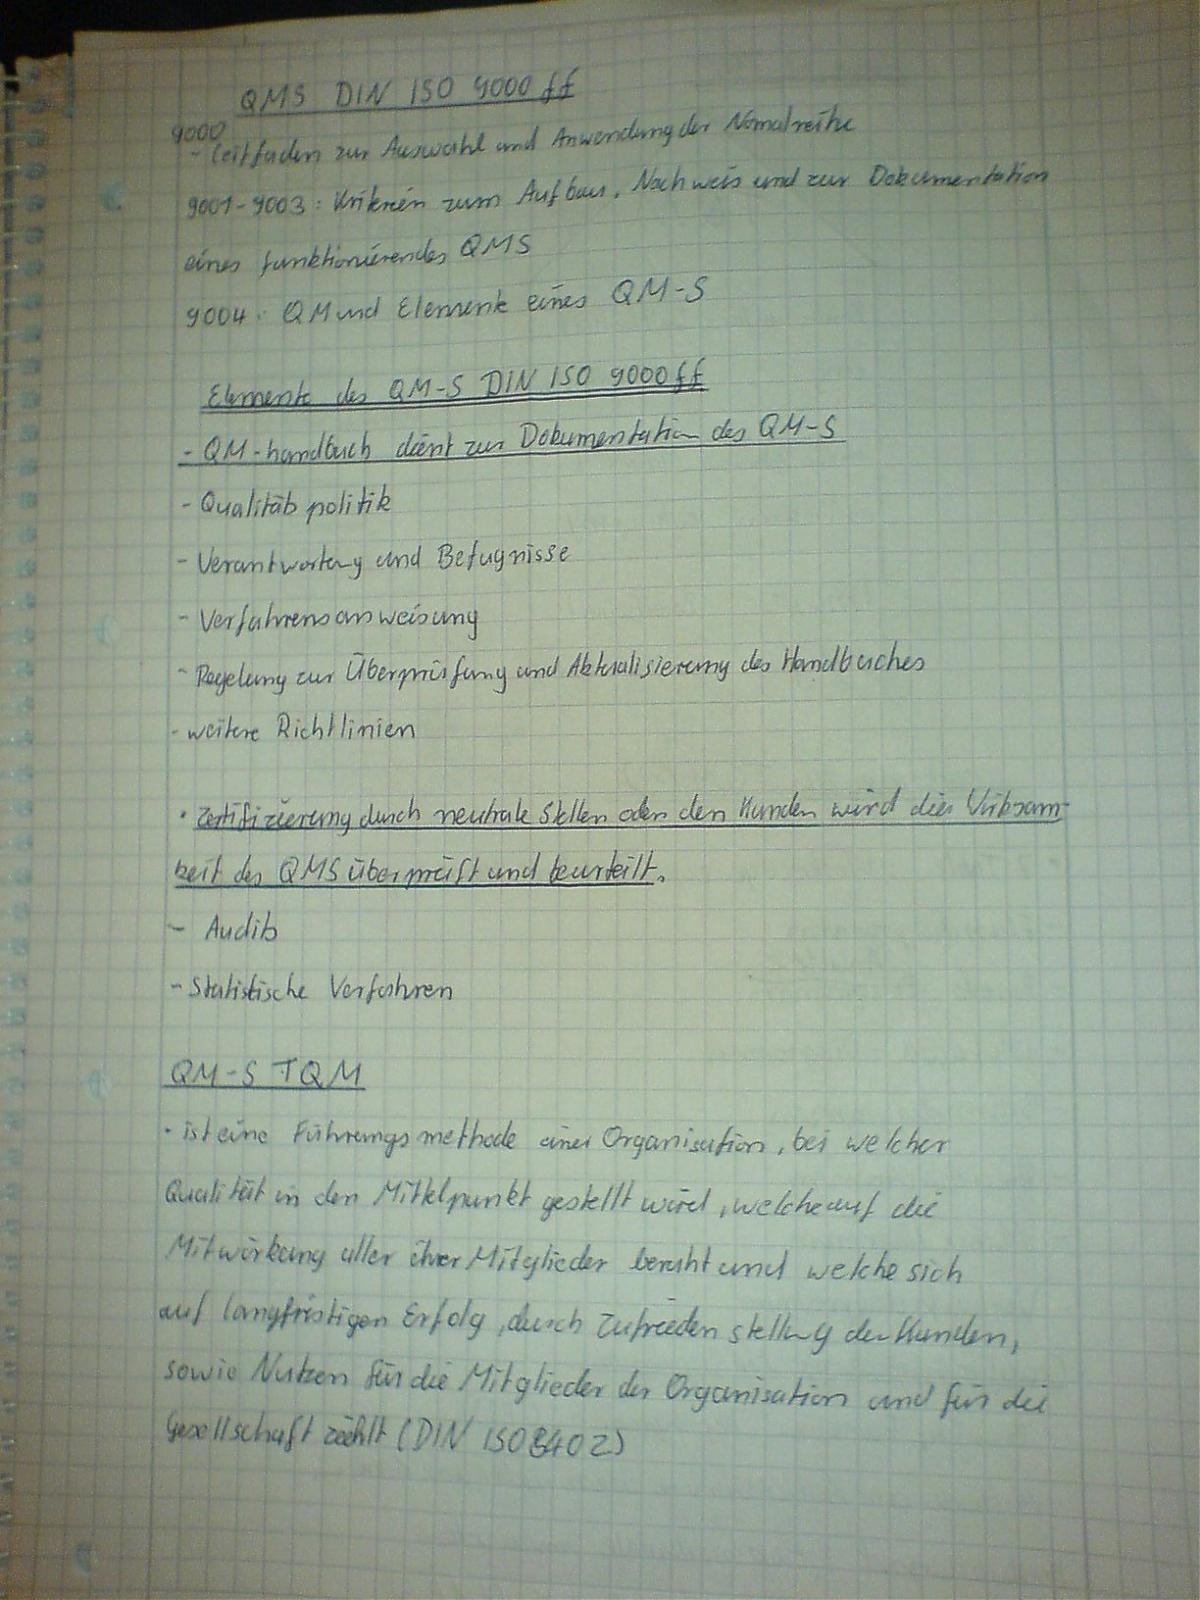 QMS DIN ISO 9000 ff
9000
- Leitfaden zur Auswahl und Anwendung der Nomalreihe
9001-9003: Kriterien zum Aufbau, Nachweis und zur Dokumentation
eines funktionierendes QMS
9004: QM und Elemente eines QM-S
Elemente des QM-S DIN ISO 9000 ff
- QM-handbuch dient zur Dokumentation des QM-S
- Qualitätspolitik
- Verantwortung und Befugnisse
- Verfahrensanweisung
- Regelung zur Überprüfung und Aktualisierung des Handbuches
- weitere Richtlinien
· Zertifizierung durch neutrale Stellen oder den Kunden wird die Wirksam-
keit des QMS überprüft und beurteilt.
- Audits
- Statistische Verfahren
QM-S TQM
· ist eine Führungsmethode einer Organisation, bei welcher
Qualität in den Mittelpunkt gestellt wird, welche auf die
Mitwirkung aller ihrer Mitglieder beruht und welche sich
auf langfristigen Erfolg, durch Zufriedenstellung der Kunden,
sowie Nutzen für die Mitglieder der Organisation und für die
Gesellschaft zählt (DIN ISO 8402)